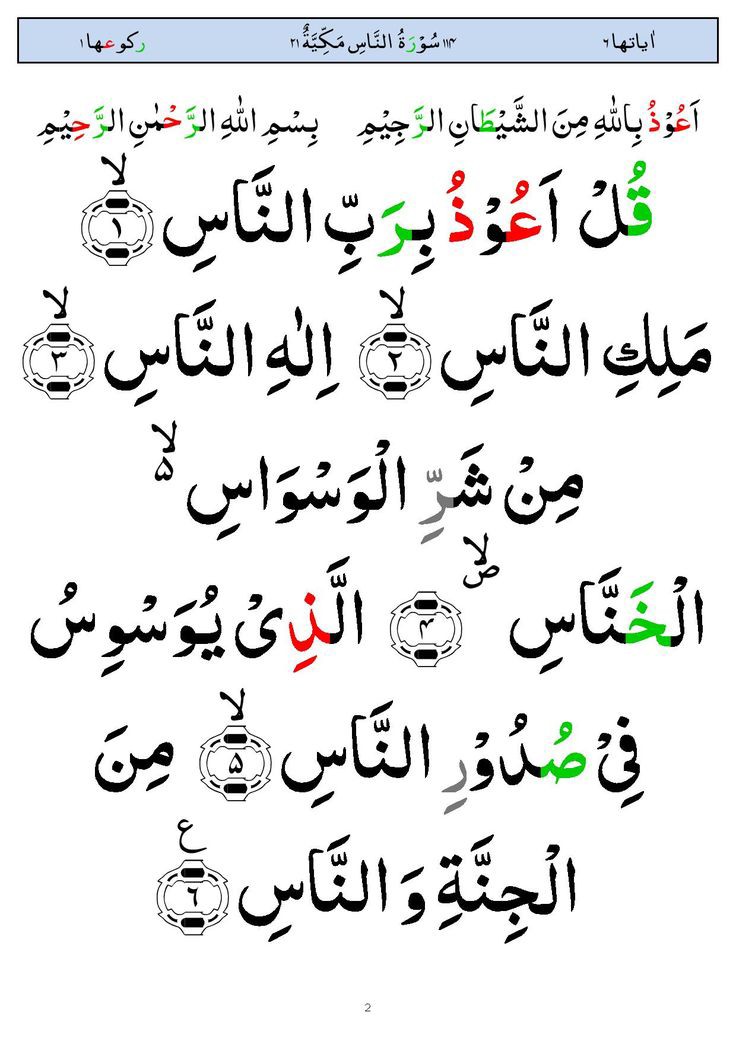 اٰیاتها ۶ ۱۱۴ سُوْرَةُ النَّاسِ مَكِّیَّةٌ ۲۱ ركوعها ۱
اَعُوْذُ بِاللهِ مِنَ الشَّیْطَانِ الرَّجِیْمِ بِسْمِ اللهِ الرَّحْمٰنِ الرَّحِیْمِ
قُلْ اَعُوْذُ بِرَبِّ النَّاسِ ۙ ۱
مَلِكِ النَّاسِ ۙ ۲ اِلٰهِ النَّاسِ ۙ ۳
مِنْ شَرِّ الْوَسْوَاسِ ۙ ۵
الْخَنَّاسِ ۙ ص ۴ الَّذِیْ یُوَسْوِسُ
فِیْ صُدُوْرِ النَّاسِ ۙ ۵ مِنَ
الْجِنَّةِ وَ النَّاسِ ع ۶
2